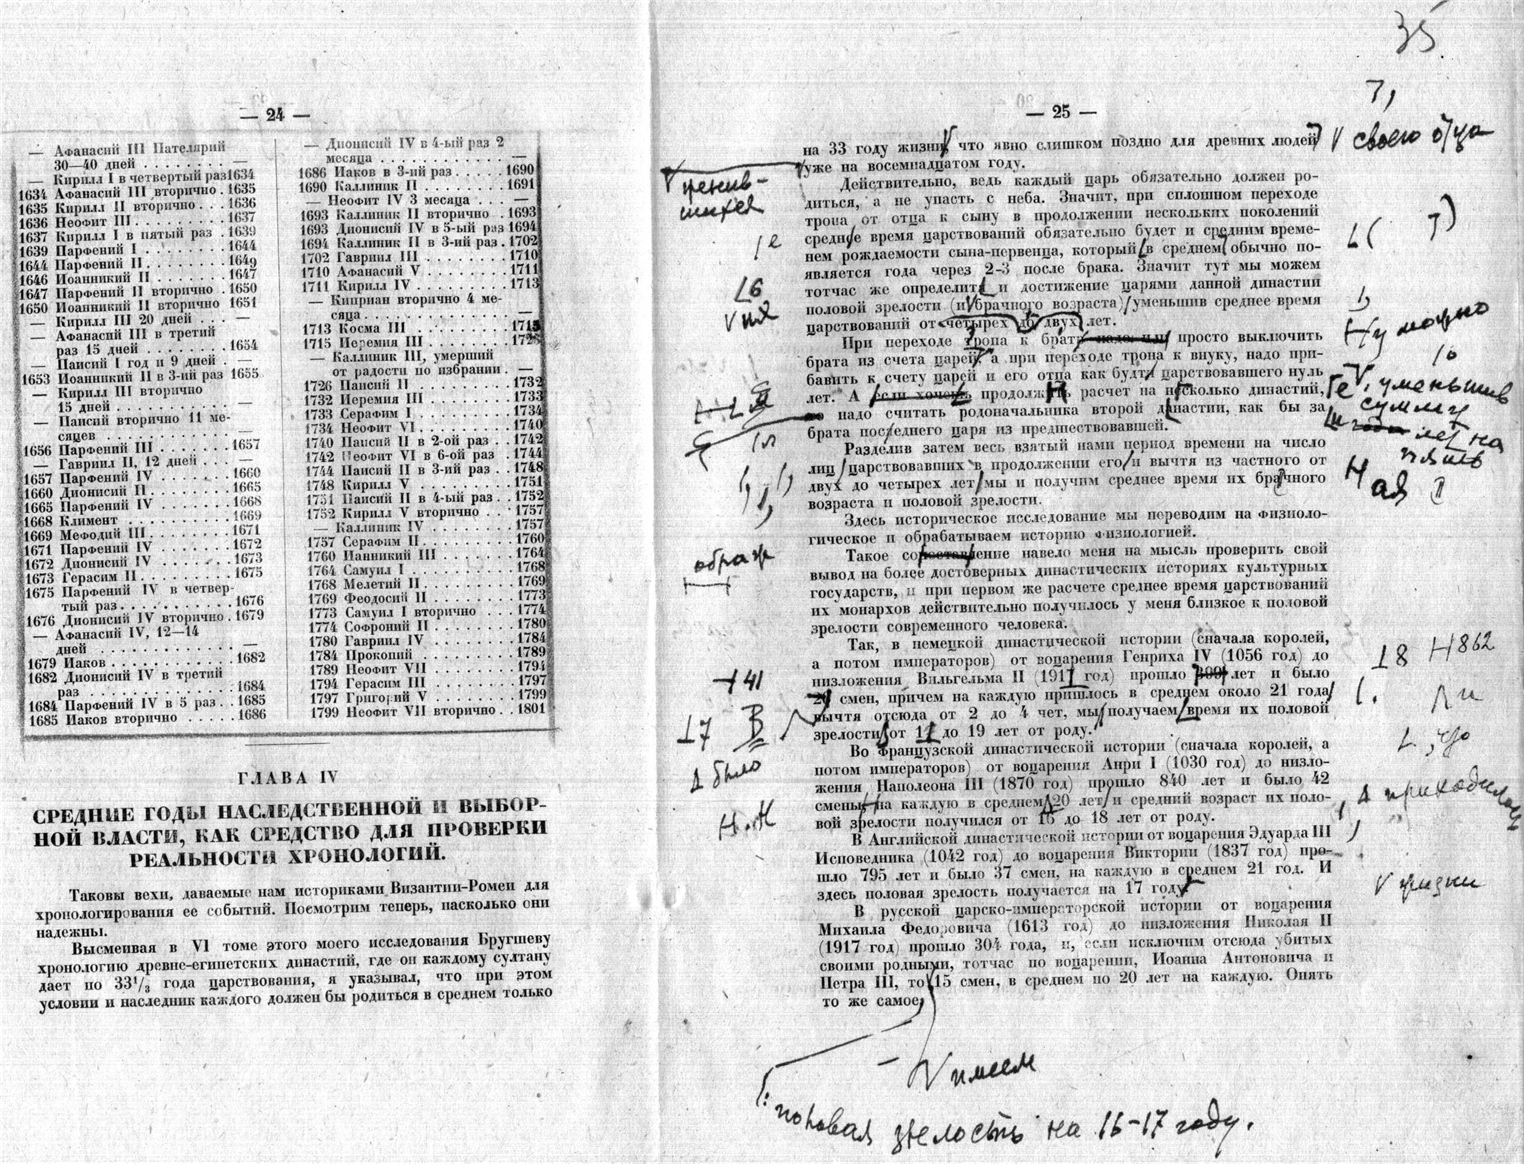 35
— 24 —
— Афанасий III Пателярий
30—40 дней . . . . . . . . —
— Кирилл I в четвертый раз 1634
1634 Афанасий III вторично . 1635
1635 Кирилл II вторично . . . 1636
1636 Неофит III . . . . . . . 1637
1637 Кирилл I в пятый раз . 1639
1639 Парфений I . . . . . . . 1644
1644 Парфений II . . . . . . . 1649
1646 Иоанникий II . . . . . . 1647
1647 Парфений II вторично . 1650
1650 Иоанникий II вторично 1651
— Кирилл III 20 дней . . . —
— Афанасий III в третий
раз 15 дней . . . . . . . 1654
— Паисий I год и 9 дней . —
1653 Иоанникий II в 3-ий раз 1655
— Кирилл III вторично
15 дней . . . . . . . . . —
— Паисий вторично 11 ме-
сяцев . . . . . . . . . . —
1656 Парфений III . . . . . . 1657
— Гавриил II, 12 дней . . . —
1657 Парфений IV . . . . . . 1660
1660 Дионисий II . . . . . . . 1665
1665 Парфений IV . . . . . . 1668
1668 Климент . . . . . . . . . 1669
1669 Мефодий III . . . . . . . 1671
1671 Парфений IV . . . . . . 1672
1672 Дионисий IV . . . . . . 1673
1673 Герасим II . . . . . . . . 1675
1675 Парфений IV в четвер-
тый раз . . . . . . . . . 1676
1676 Дионисий IV вторично . 1679
— Афанасий IV, 12—14
дней . . . . . . . . . . —
1679 Иаков . . . . . . . . . . 1682
1682 Дионисий IV в третий
раз . . . . . . . . . . . 1684
1684 Парфений IV в 5 раз . . 1685
1685 Иаков вторично . . . . . 1686
— Дионисий IV в 4-ый раз 2
месяца . . . . . . . . . —
1686 Иаков в 3-ий раз . . . . . 1690
1690 Каллиник II . . . . . . . 1691
— Неофит IV 3 месяца . . . —
1693 Каллиник II вторично . 1693
1693 Дионисий IV в 5-ый раз 1694
1694 Каллиник II в 3-ий раз . 1702
1702 Гавриил III . . . . . . . 1710
1710 Афанасий V . . . . . . . 1711
1711 Кирилл IV . . . . . . . . 1713
— Киприан вторично 4 ме-
сяца . . . . . . . . . . —
1713 Косма III . . . . . . . .
1715 Иеремия III . . . . . . .
— Каллиник III, умерший
от радости по избрании . —
1726 Паисий II . . . . . . . . 1732
1732 Иеремия III . . . . . . . 1733
1733 Серафим I . . . . . . . . 1734
1734 Неофит VI . . . . . . . . 1740
1740 Паисий II в 2-ой раз . . 1742
1742 Неофит VI в 6-ой раз . . 1744
1744 Паисий II в 3-ий раз . . 1748
1748 Кирилл V . . . . . . . . 1751
1751 Паисий II в 4-ый раз . . 1752
1752 Кирилл V вторично . . . 1757
— Каллиник IV . . . . . . . 1757
1757 Серафим II . . . . . . . . 1760
1760 Ианникий III . . . . . . 1764
1764 Самуил I . . . . . . . . . 1768
1768 Мелетий II . . . . . . . . 1769
1769 Феодосий II . . . . . . . 1773
1773 Самуил I вторично . . . 1774
1774 Софроний II . . . . . . . 1780
1780 Гавриил IV . . . . . . . 1784
1784 Прокопий . . . . . . . . 1789
1789 Неофит VII . . . . . . . 1794
1794 Герасим III . . . . . . . 1797
1797 Григорий V . . . . . . . 1799
1799 Неофит VII вторично . . 1801
ГЛАВА IV
СРЕДНИЕ ГОДЫ НАСЛЕДСТВЕННОЙ И ВЫБОР-
НОЙ ВЛАСТИ, КАК СРЕДСТВО ДЛЯ ПРОВЕРКИ
РЕАЛЬНОСТИ ХРОНОЛОГИЙ.
Таковы вехи, даваемые нам историками Византии-Ромеи для
хронологирования ее событий. Посмотрим теперь, насколько они
надежны.
Высмеивая в VI томе этого моего исследования Бругшеву
хронологию древне-египетских династий, где он каждому султану
дает по 33¹/₃ года царствования, я указывал, что при этом
условии и наследник каждого должен бы родиться в среднем только
— 25 —
на 33 году жизни, что явно слишком поздно для древних людей
уже на восемнадцатом году.
Действительно, ведь каждый царь обязательно должен ро-
диться, а не упасть с неба. Значит, при сплошном переходе
трона от отца к сыну в продолжении нескольких поколений
средне время царствований обязательно будет и средним време-
нем рождаемости сына-первенца, который в среднем обычно по-
является года через 2-3 после брака. Значит тут мы можем
тотчас же определить и достижение царями данной династии
половой зрелости (и брачного возраста) уменьшив среднее время
царствований от четырех до двух лет.
При переходе трона к брату надо или просто выключить
брата из счета царей, а при переходе трона к внуку, надо при-
бавить к счету царей и его отца как будто царствовавшего нуль
лет. А если хочешь продолжить расчет на несколько династий,
то надо считать родоначальника второй династии, как бы за
брата последнего царя из предшествовавшей.
Разделив затем весь взятый нами период времени на число
лиц царствовавших в продолжении его и вычтя из частного от
двух до четырех лет мы и получим среднее время их брачного
возраста и половой зрелости.
Здесь историческое исследование мы переводим на физиоло-
гическое и обрабатываем историю физиологией.
Такое сопоставление навело меня на мысль проверить свой
вывод на более достоверных династических историях культурных
государств, и при первом же расчете среднее время царствований
их монархов действительно получилось у меня близкое к половой
зрелости современного человека.
Так, в немецкой династической истории (сначала королей,
а потом императоров) от воцарения Генриха IV (1056 год) до
низложения Вильгельма II (1917 год) прошло лет и было
смен, причем на каждую пришлось в среднем около 21 года
вычтя отсюда от 2 до 4 чет, мы получаем время их половой
зрелости от 17 до 19 лет от роду.
Во Французской династической истории (сначала королей, а
потом императоров) от воцарения Анри I (1030 год) до низло-
жения Наполеона III (1870 год) прошло 840 лет и было 42
смены, на каждую в среднем 20 лет и средний возраст их поло-
вой зрелости получился от 16 до 18 лет от роду.
В Английской династической истории от воцарения Эдуарда III
Исповедника (1042 год) до воцарения Виктории (1837 год) про-
шло 795 лет и было 37 смен, на каждую в среднем 21 год. И
здесь половая зрелость получается на 17 году
В русской царско-императорской истории от воцарения
Михаила Федоровича (1613 год) до низложения Николая II
(1917 год) прошло 304 года, и, если исключим отсюда убитых
своими родными, тотчас по воцарении, Иоанна Антоновича и
Петра III, то 15 смен, в среднем по 20 лет на каждую. Опять
то же самое
своего отца
женив-
шихся
ния
ну можно
уменьшив
сумму
лет на
ая
ображ
41
17 В
было
Н.К
18 Н 862
ли
, что
приходилось
имеем
половая зрелость на 16-17 году.